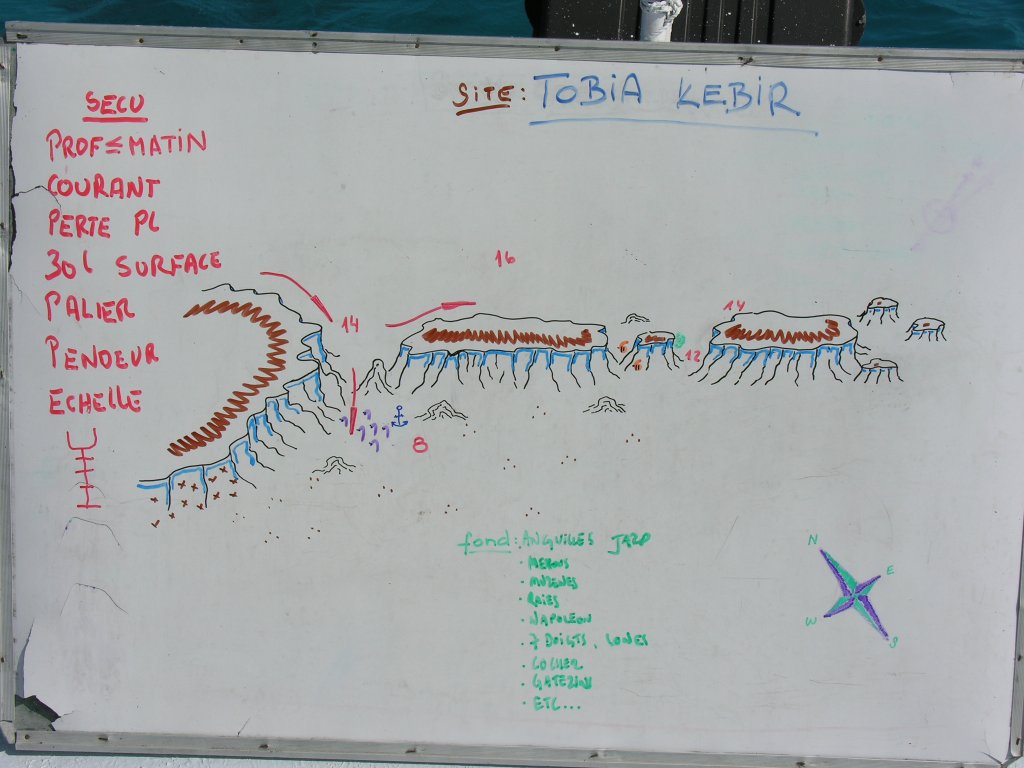 SITE: TOBIA KEBIR
SECU
PROF ≤ MATIN
COURANT
PERTE PL
30L SURFACE
PALIER
PENDEUR
ECHELLE
16
14
14
12
8
fond: ANGUILLES JARD
· MEROUS
· MURENES
· RAIES
· NAPOLEON
· 7 DOIGTS, LONES
· COCHER
· GATERINS
· ETC...
N
E
W
S